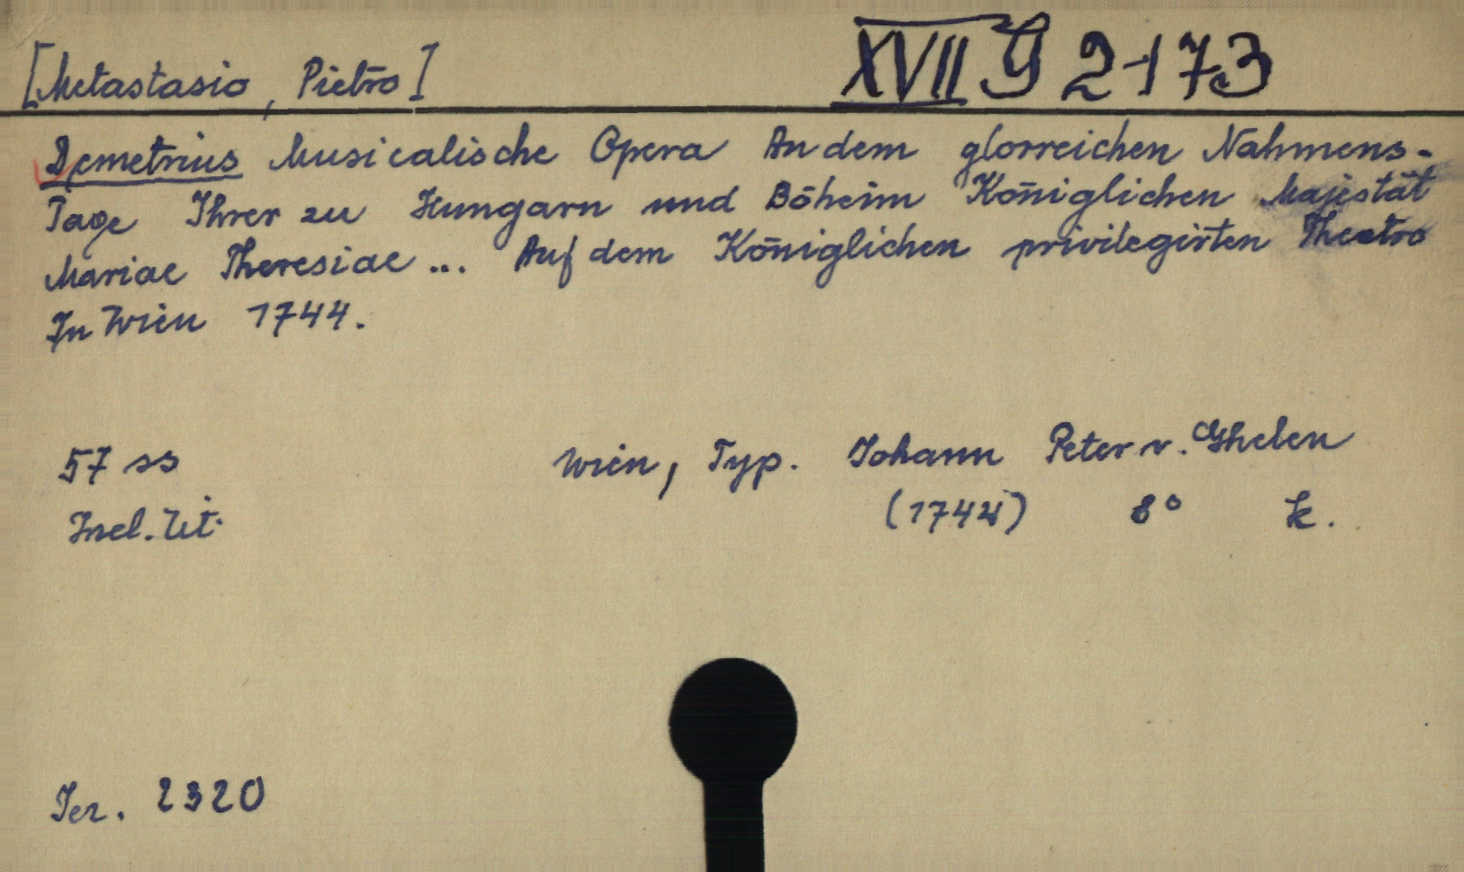 [Metastasio, Pietro] XVII G 2173
Demetrius Musicalische Opera An dem glorreichen Nahmens-
Tage Ihrer zu Hungarn und Böheim Königlichen Majestät
Mariae Theresiae ... Auf dem Königlichen privilegirten Theatro
In Wien 1744.
57 ss Wien, Typ. Johann Peter v. Ghelen
(1744) 8° k.
Jer. 2320